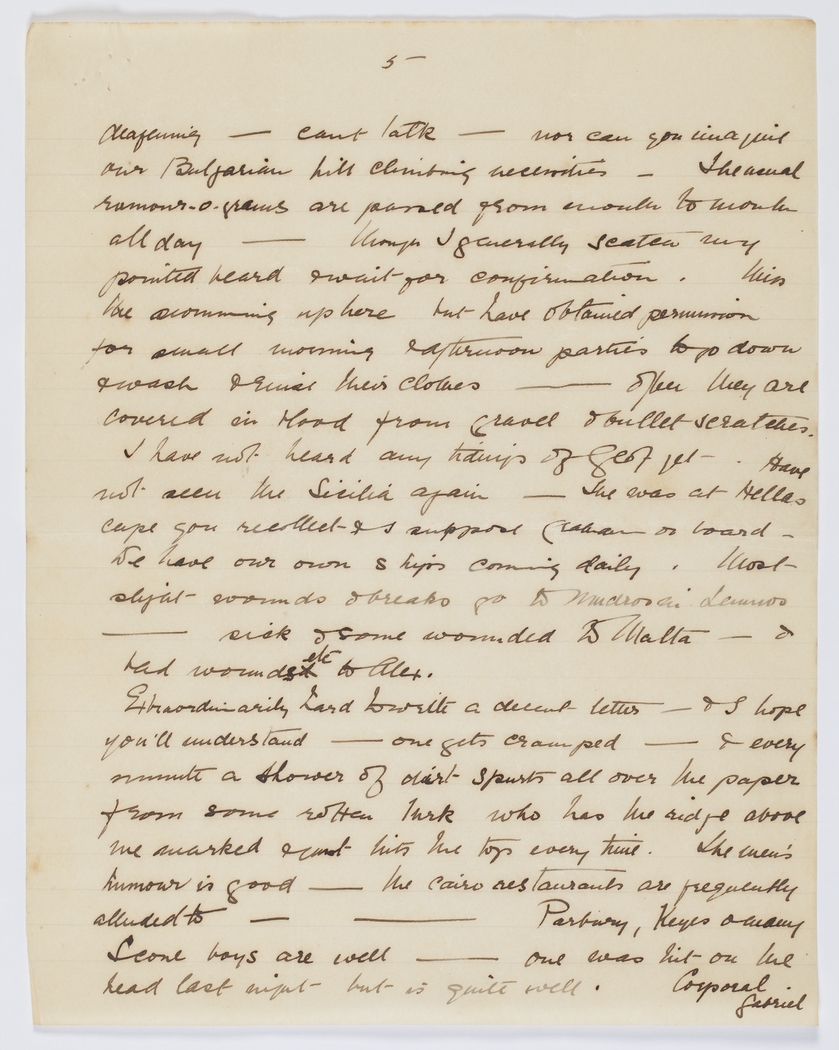 5
deafening — cant talk — nor can you imagine
our Bulgarian hill climbing necessities – The usual
rumour-o-grams are passed from mouth to mouth
all day — though I generally scratch my
pointed beard & wait for confirmation. Miss
the swimming up here but have obtained permission
for small morning & afternoon parties to go down
& wash & rinse their clothes — often they are
covered in blood from gravel & bullet scratches.
I have not heard any tidings of Geof yet – . Have
not seen the Sicilia again — She was at Hellas
cape you recollect & I suppose on board –
We have our own ships coming daily. Most
slight wounds & breaks go to Mudros in Lemnos
— sick & some wounded to Malta — &
bad wounds etc to Alex.
Extraordinarily hard to write a decent letter — & I hope
you'll understand — one gets cramped — & every
minute a shower of dirt spurts all over the paper
from some rotten Turk who has the ridge above
me marked & just hits the top every time. The men's
humour is good — the cairo restaurants are frequently
alluded to — — Parbury, Keyes & many
Scone boys are well — one was hit on the
head last night but is quite well. Corporal
Gabriel